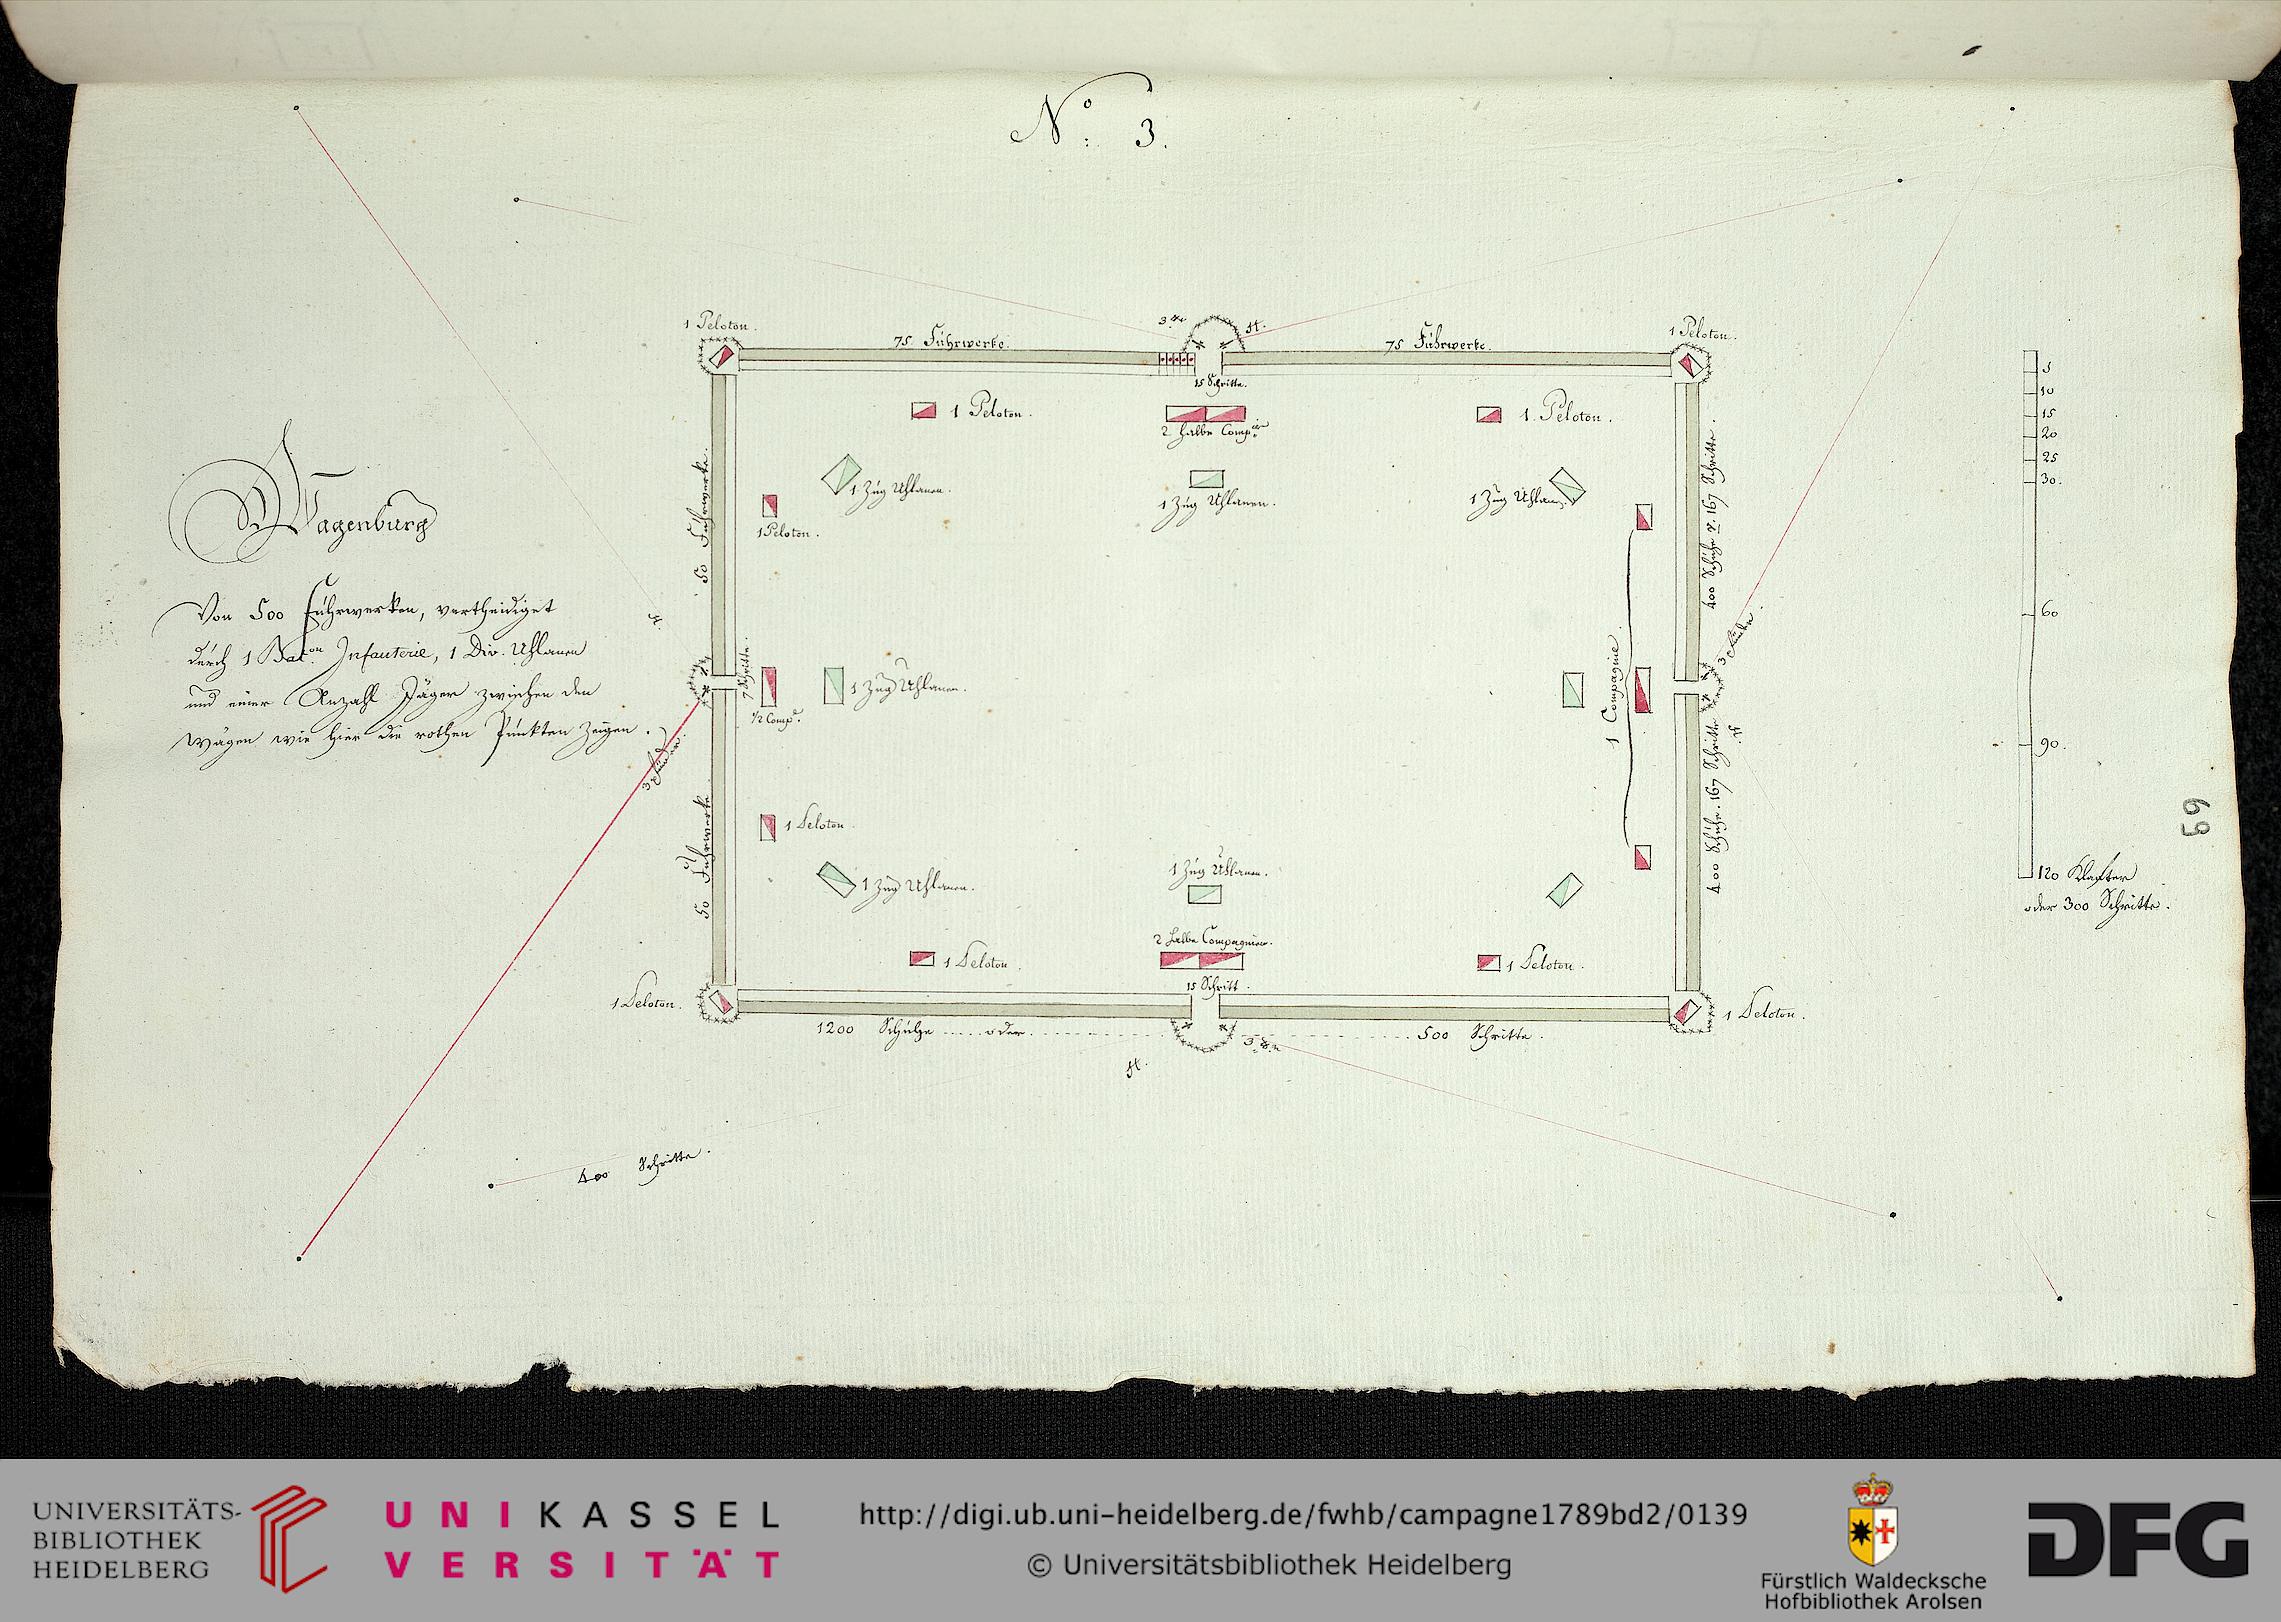 No: 3.
1 Peloton.
75 Fuhrwerke.
15 Schritte.
75 Fuhrwerke.
1 Peloton.
1 Peloton.
2 halbe Comp
1. Peloton.
1 Zug Uhlanen.
1 Zug Uhlanen.
1 Zug Uhlanen.
1 Peloton.
50 Fuhrwerke.
400 Schuhe 167 Schritte.
Wagenburg
Von 500 Fuhrwerken, vertheidiget
durch 1 Baton. Infanterie, 1 Div. Uhlanen
und einer Anzahl Jäger zwischen den
wägen wie hier die rothen Punkten zeigen.
7 Schritte.
1/2 Comp.
1 Zug Uhlanen.
1 Compagnie.
50 Fuhrwerke.
400 Schuhe. 167 Schritte
1 Peloton.
1 Zug Uhlanen.
1 Zug Uhlanen.
2 halbe Compagnien.
1 Peloton.
1 Peloton.
15 Schritt.
1 Peloton.
1 Peloton.
1200 Schuhe ..... oder ..... 500 Schritte.
400 Schritte.
5
10
15
20
25
30.
60
90.
120 Klafter
oder 300 Schritte.
69
UNIVERSITÄTS-
BIBLIOTHEK
HEIDELBERG
UNIKASSEL
VERSITÄT
http://digi.ub.uni-heidelberg.de/fwhb/campagne1789bd2/0139
© Universitätsbibliothek Heidelberg
Fürstlich Waldecksche
Hofbibliothek Arolsen
DFG